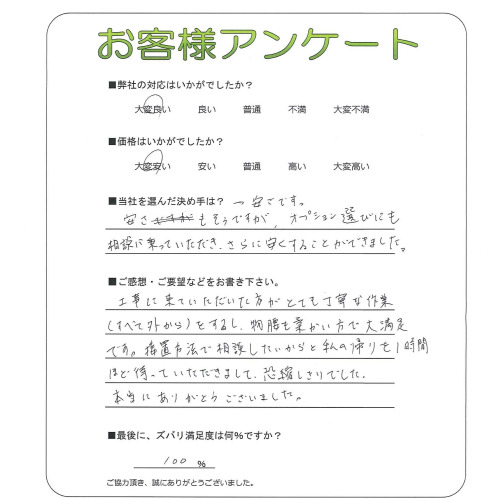 お客様アンケート
■弊社の対応はいかがでしたか？
大変良い 良い 普通 不満 大変不満
■価格はいかがでしたか？
大変安い 安い 普通 高い 大変高い
■当社を選んだ決め手は？ → 安さです。
安さもそうですが、オプション選びにも
相談に乗っていただき、さらに安くすることができました。
■ご感想・ご要望などをお書き下さい。
工事に来ていただいた方がとても丁寧な作業
(すべて外から)をするし、物腰も柔かい方で大満足
です。措置方法で相談したいからと私の帰りも1時間
ほど待っていただきまして、恐縮しきりでした。
本当にありがとうございました。
■最後に、ズバリ満足度は何%ですか？
100 %
ご協力頂き、誠にありがとうございました。